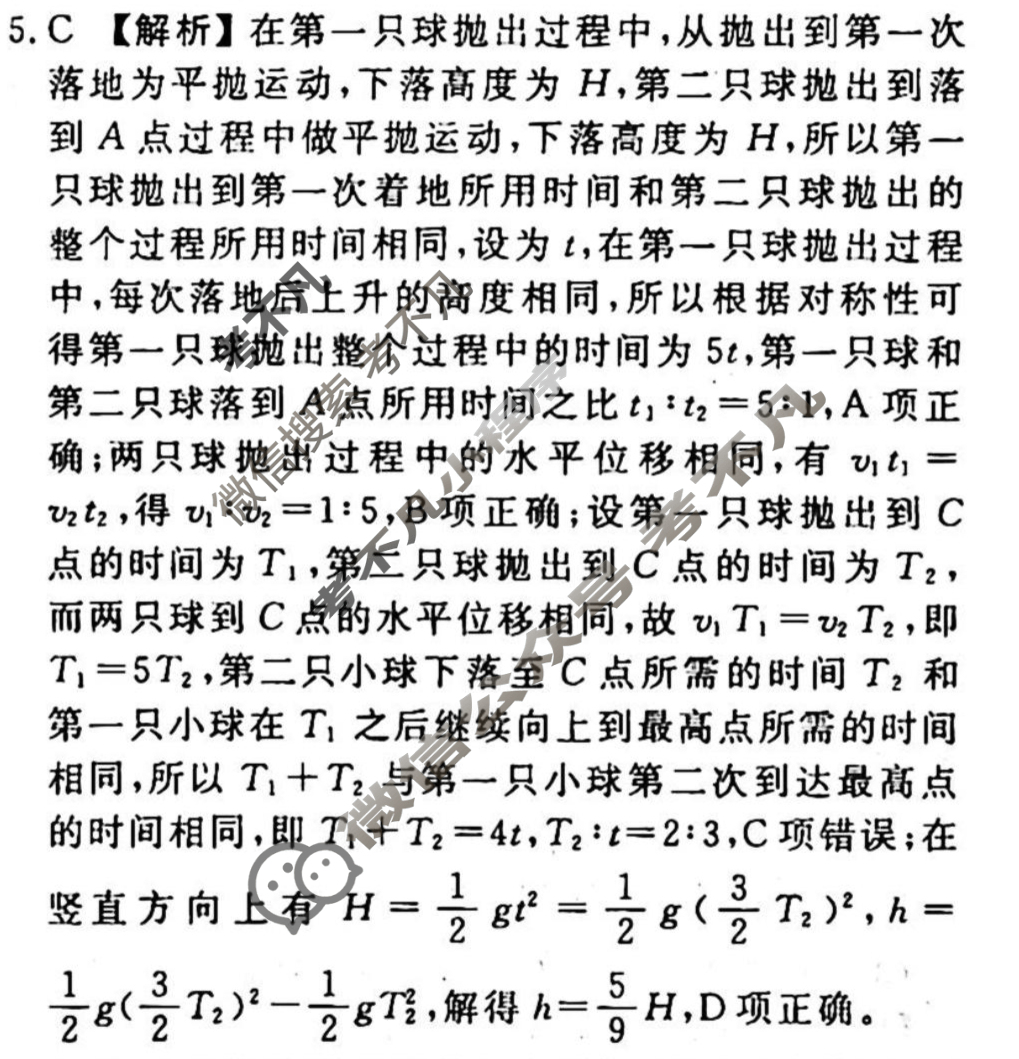 5. C 【解析】在第一只球抛出过程中,从抛出到第一次
落地为平抛运动,下落高度为 H,第二只球抛出到落
到 A 点过程中做平抛运动,下落高度为 H,所以第一
只球抛出到第一次着地所用时间和第二只球抛出的
整个过程所用时间相同,设为 t,在第一只球抛出过程
中,每次落地后上升的高度相同,所以根据对称性可
得第一只球抛出整个过程中的时间为 5t,第一只球和
第二只球落到 A 点所用时间之比 t₁∶t₂=5∶1,A 项正
确;两只球抛出过程中的水平位移相同,有 v₁t₁=
v₂t₂,得 v₁∶v₂=1∶5,B 项正确;设第一只球抛出到 C
点的时间为 T₁,第二只球抛出到 C 点的时间为 T₂,
而两只球到 C 点的水平位移相同,故 v₁T₁=v₂T₂,即
T₁=5T₂,第二只小球下落至 C 点所需的时间 T₂ 和
第一只小球在 T₁ 之后继续向上到最高点所需的时间
相同,所以 T₁+T₂ 与第一只小球第二次到达最高点
的时间相同,即 T₁+T₂=4t,T₂∶t=2∶3,C 项错误;在
竖直方向上有 H=1/2 gt²=1/2 g(3/2 T₂)²,h=
1/2 g(3/2 T₂)²-1/2 gT₂²,解得 h=5/9 H,D 项正确。
考不凡
微信搜索考不凡
考不凡小程序
微信公众号 考不凡